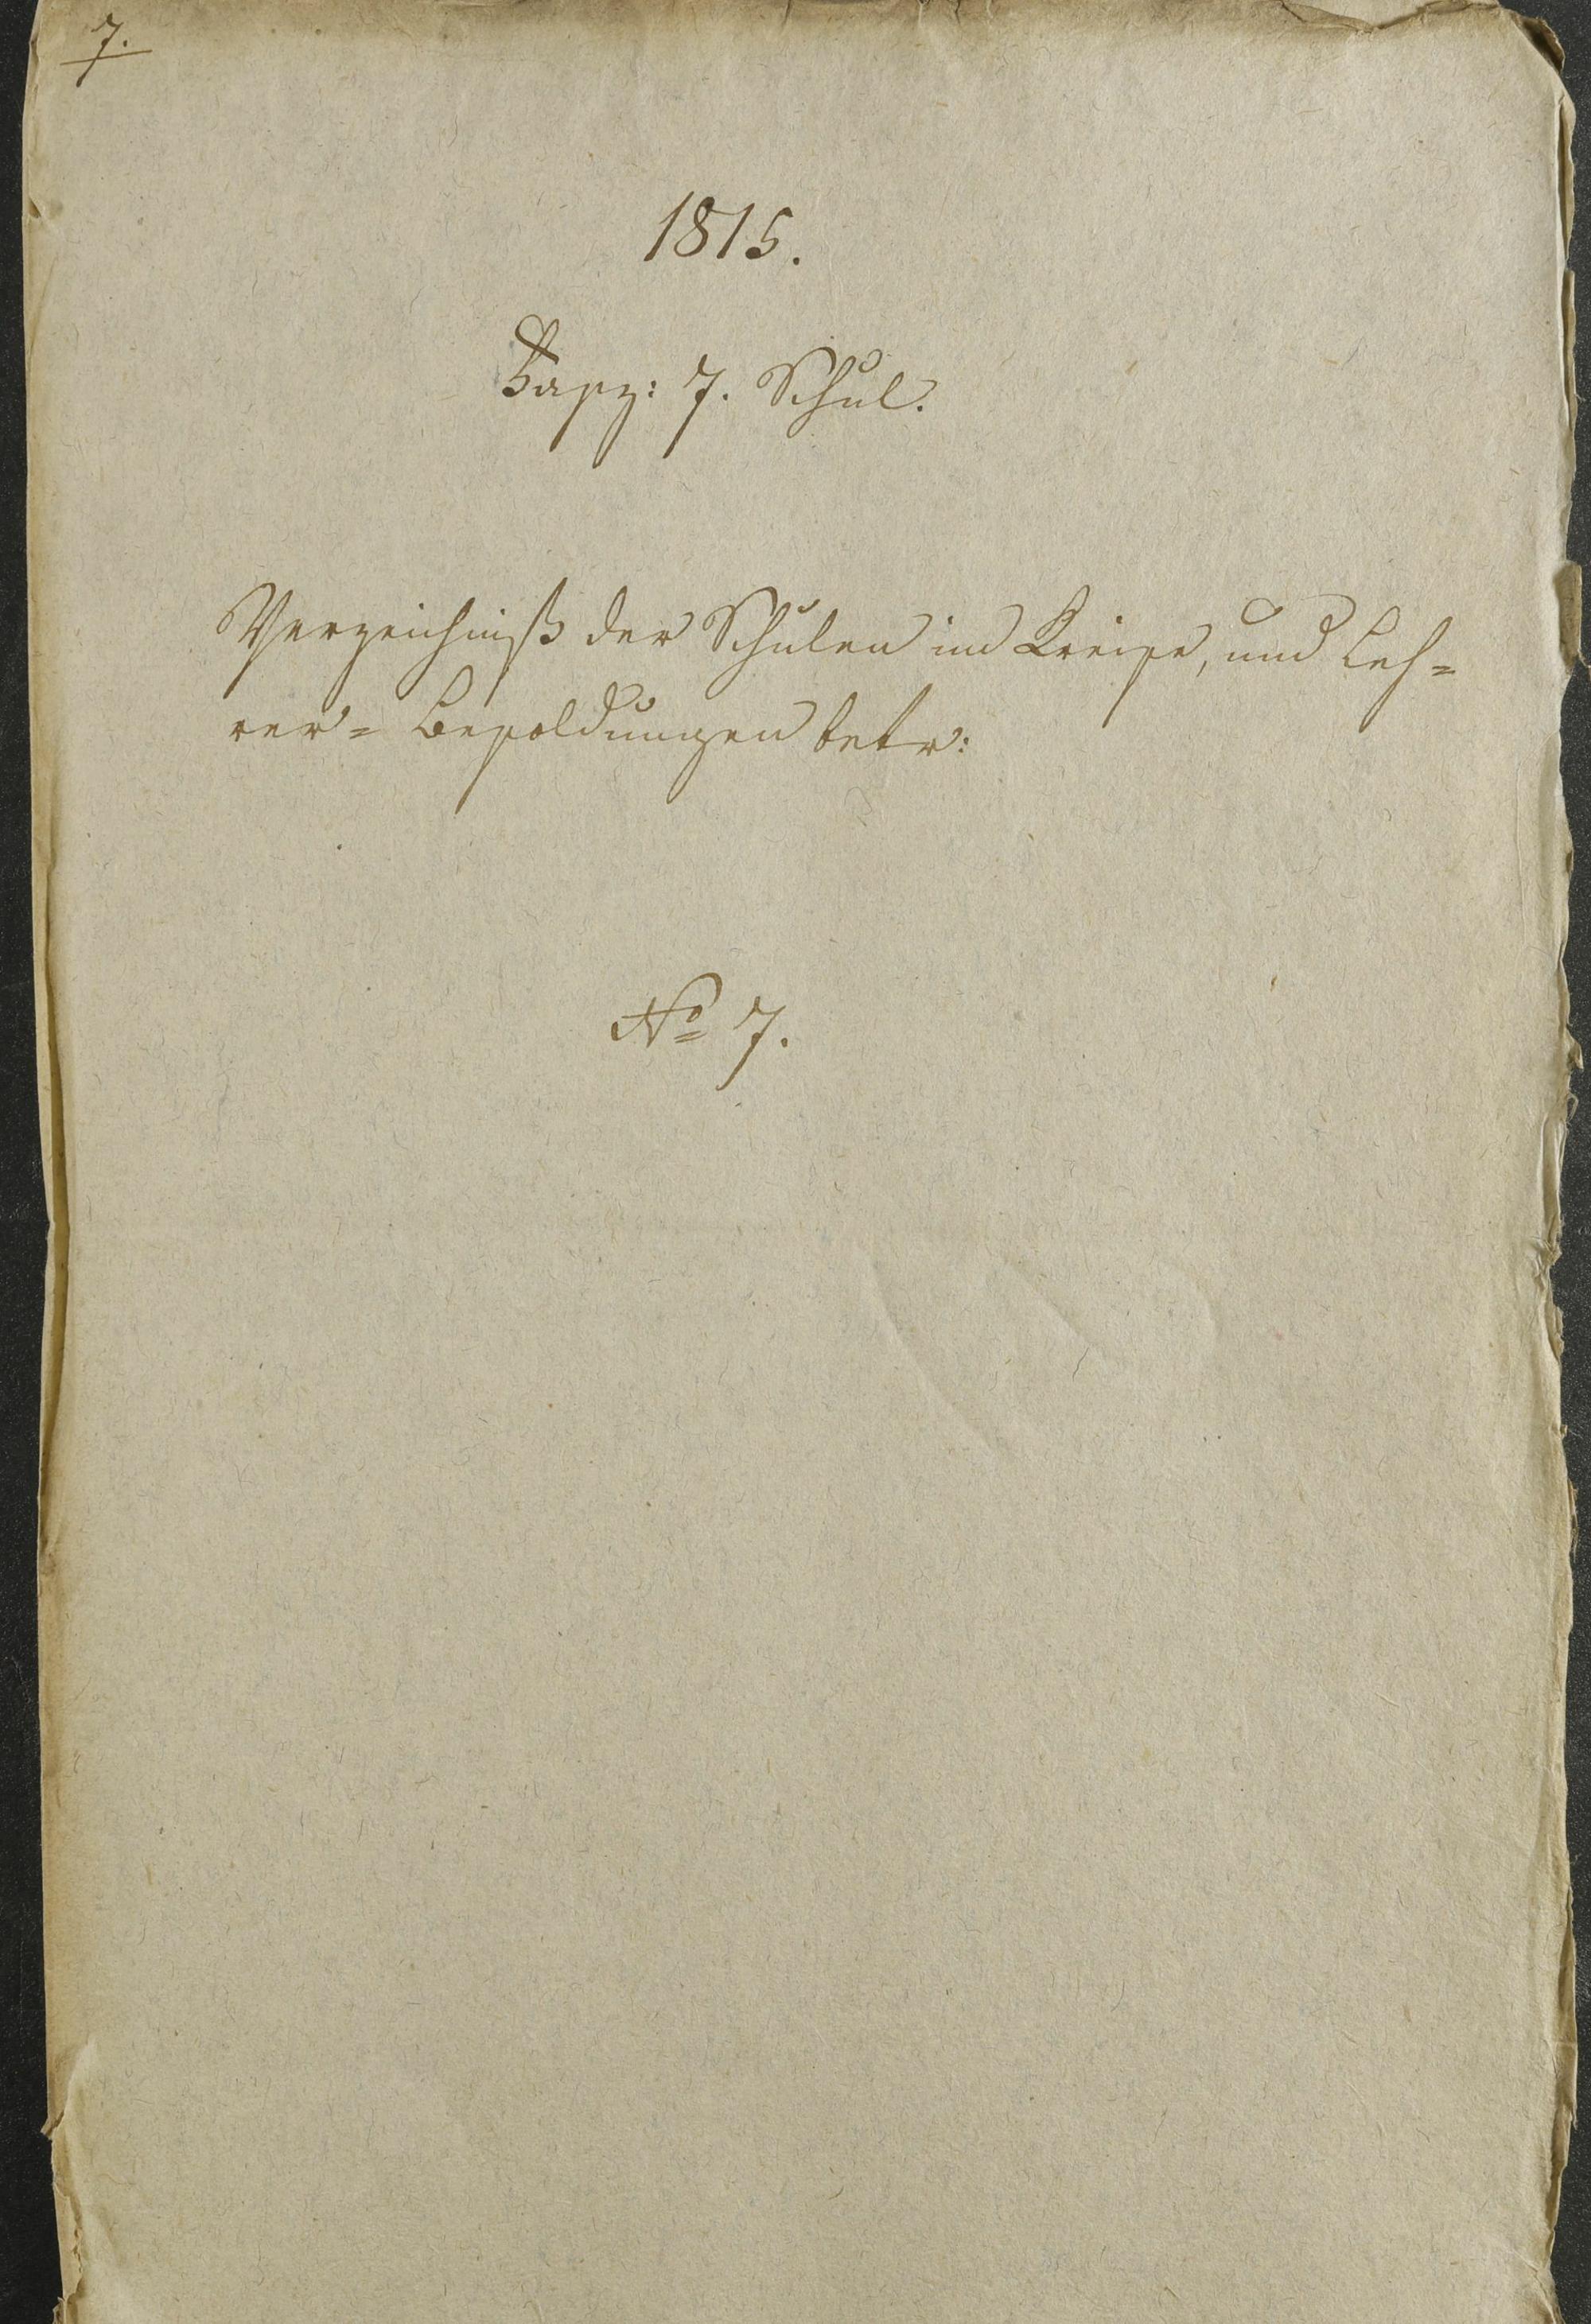 7.
1815.
Fasz: 7. Schul.
Verzeichniß der Schulen im Kreise, und Leh=
rer= Besoldungen betr:
No 7.